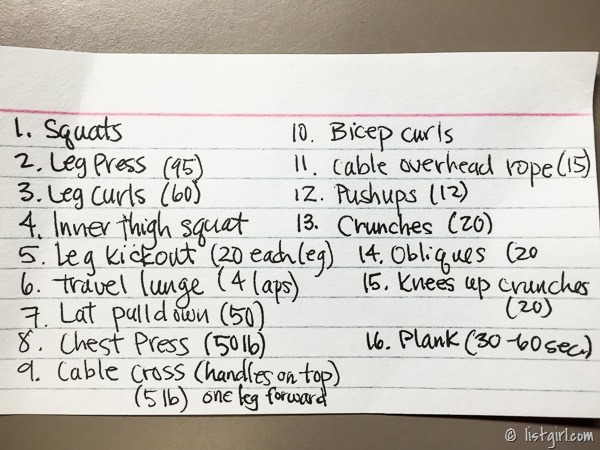 1. Squats
2. Leg Press (95)
3. Leg Curls (60)
4. Inner thigh squat
5. Leg kickout (20 each leg)
6. travel lunge (4 laps)
7. Lat pulldown (50)
8. Chest Press (50lb)
9. Cable Cross (handles on top)
(5 lb) one leg forward
10. Bicep curls
11. Cable overhead rope (15)
12. Pushups (12)
13. Crunches (20)
14. Obliques (20
15. Knees up crunches
(20)
16. Plank (30-60 sec.)
© listgirl.com